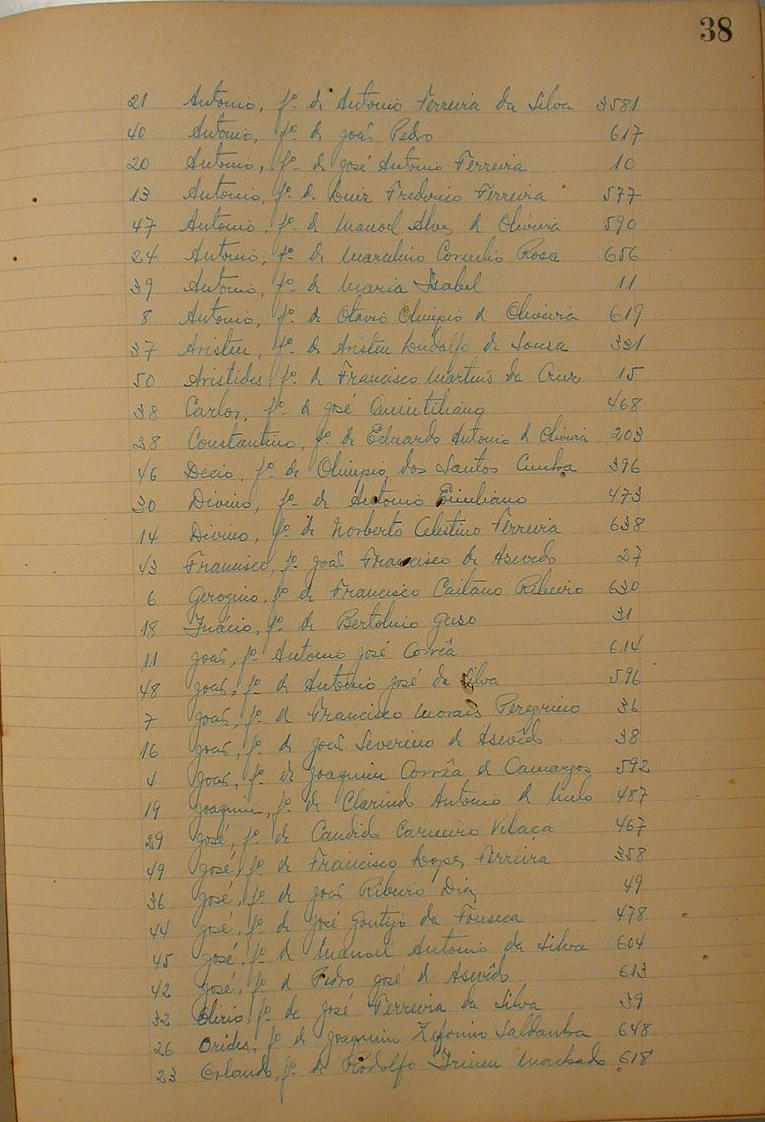 38
21 Antonio, fº de Antonio Ferreira da Silva 3581
40 Antonio, fº de João Pedro 617
20 Antonio, fº de José Antonio Ferreira 10
13 Antonio, fº de Luiz Frederico Ferreira 577
47 Antonio, fº de Manoel Alves de Oliveira 590
24 Antonio, fº de Marcelino Cornelio Rosa 656
39 Antonio, fº de Maria Isabel 11
8 Antonio, fº de Otavio Olimpio de Oliveira 619
37 Aristeu, fº de Aristeu de Sousa 331
50 Aristides, fº de Francisco Martins da Cruz 15
38 Carlos, fº de José Quintiliano 468
28 Constantino, fº de Eduardo Antonio de Oliveira 203
46 Decio, fº de Olimpio dos Santos Cunha 396
30 Divino, fº de Antonio Emiliano 473
14 Divino, fº de Norberto Celestino Ferreira 638
43 Francisco, fº João Francisco de Asevedo 27
6 Gerogino, fº de Francisco Caitano Ribeiro 630
18 Inácio, fº de Bertolino 31
11 João, fº Antonio José Corrêa 614
48 João, fº de Antonio José da Silva 596
7 João, fº de Francisco Morais Peregrino 36
16 João, fº de João Severino de Asevêdo 38
4 João, fº de Joaquim Corrêa de Camargos 592
19 Joaquim, fº de Clarindo Antonio de Melo 487
29 José, fº de Candido Carneiro Vilaça 467
49 José, fº de Francisco Lopes Ferreira 358
36 José, fº de João Ribeiro Dias 49
44 José, fº de José Gontijo da Fonseca 478
45 José, fº de Manoel Antonio da Silva 604
42 José, fº de Pedro José de Asevêdo 613
32 Olirio, fº de José Ferreira da Silva 39
26 Orides, fº de Joaquim Zeferino Saldanha 648
23 Orlando, fº de Rodolfo Irineu Machado 618